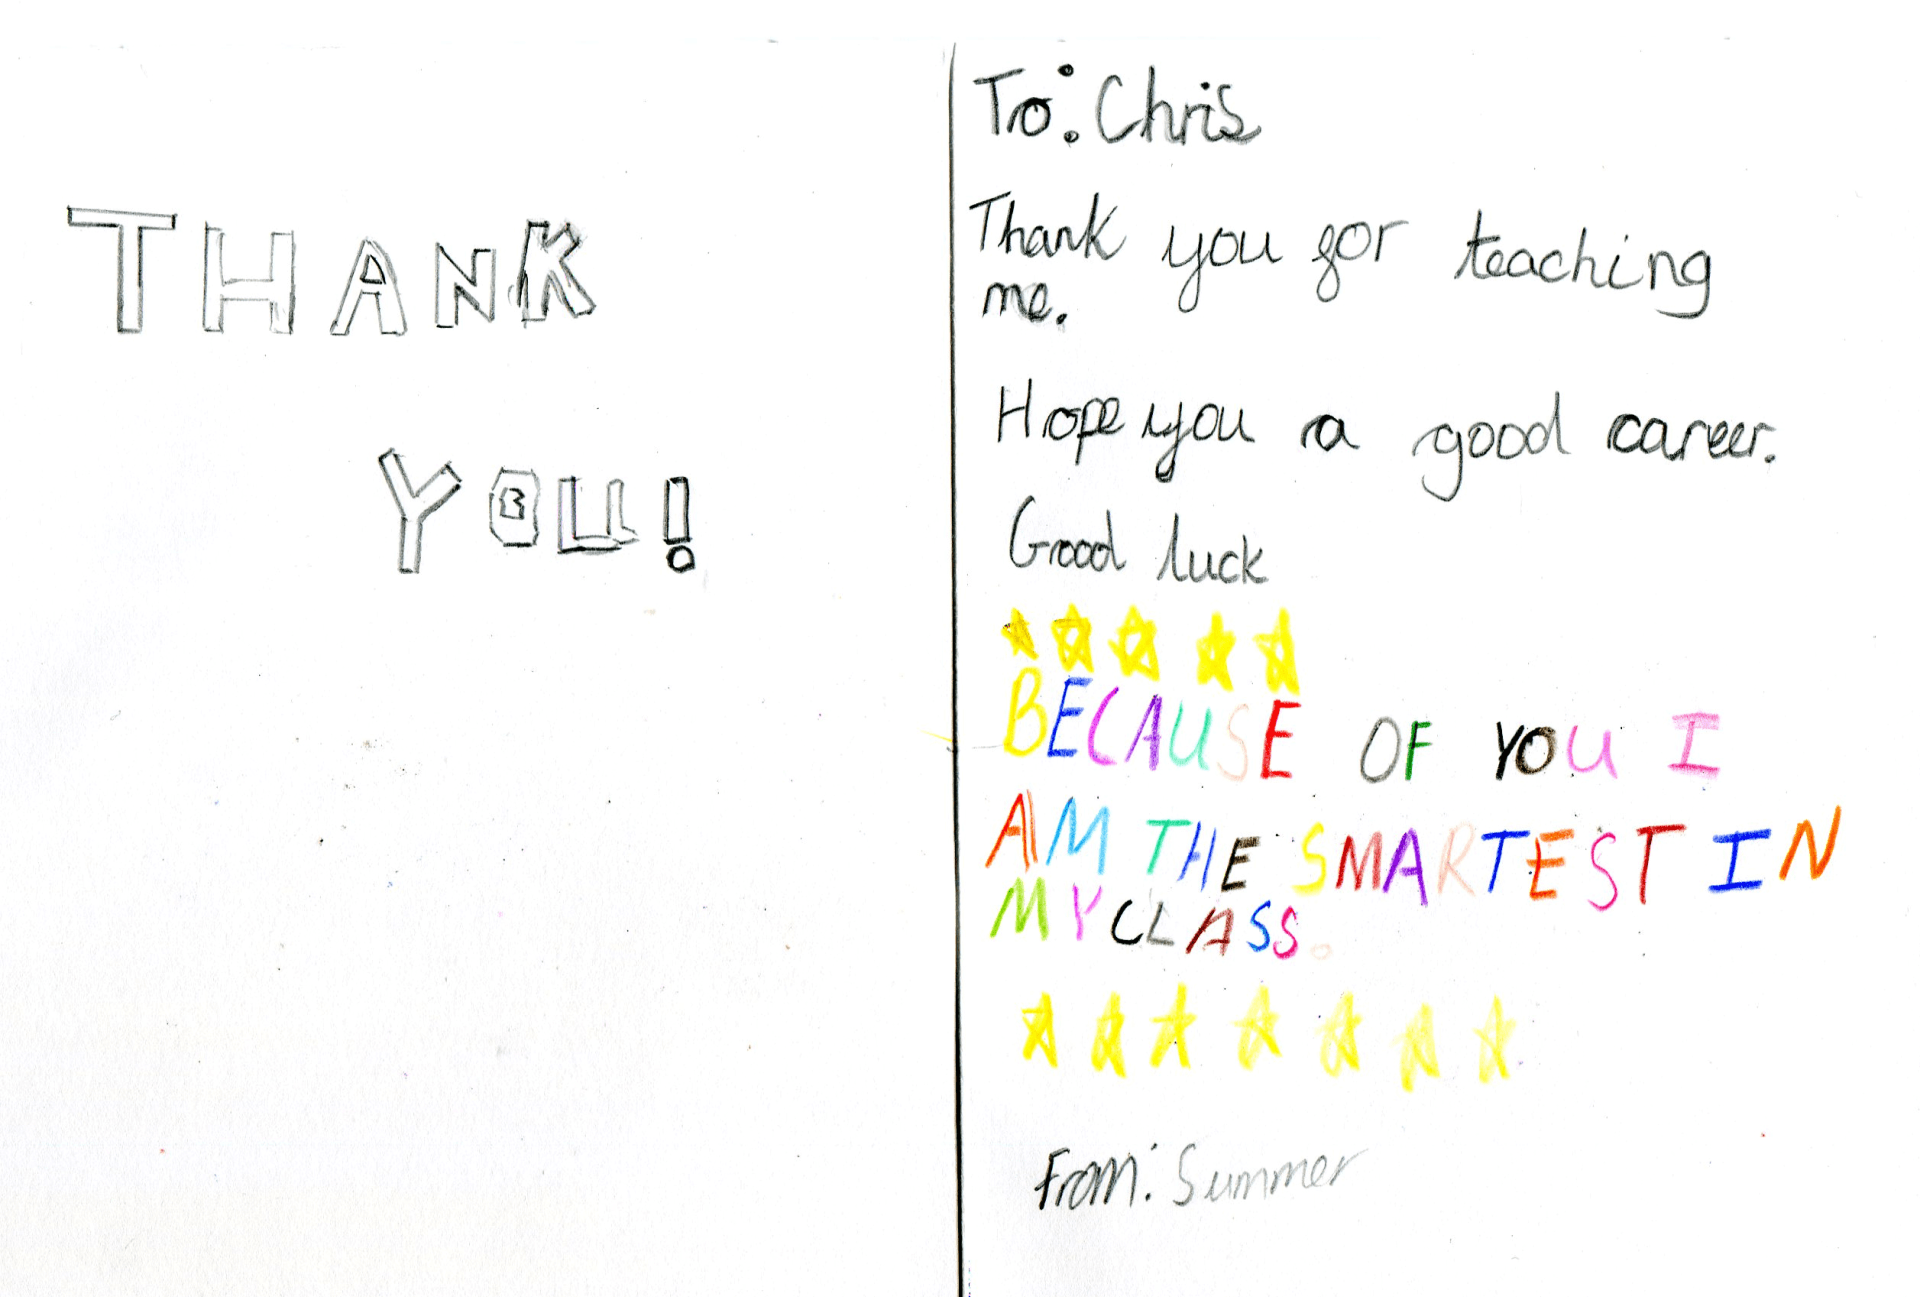 THANK
YOU!
To: Chris
Thank you for teaching
me.
Hope you a good career.
Good luck
BECAUSE OF YOU I
AM THE SMARTEST IN
MY CLASS.
From: Summer